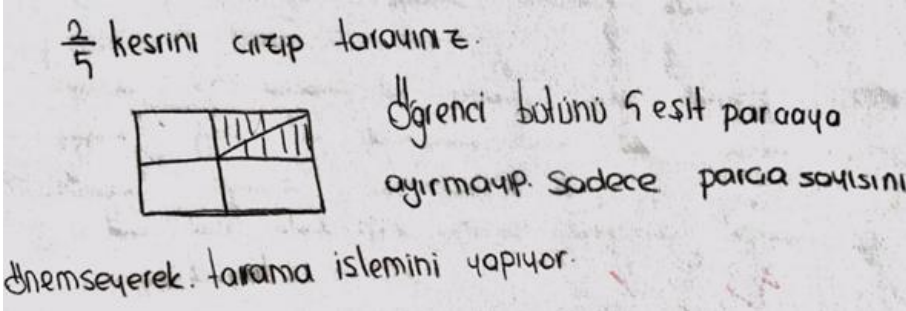 2/5 kesrini çizip tarayınız.
Öğrenci bütünü 5 eşit parçaya
ayırmayıp. Sadece parça sayısını
önemseyerek. tarama işlemini yapıyor.